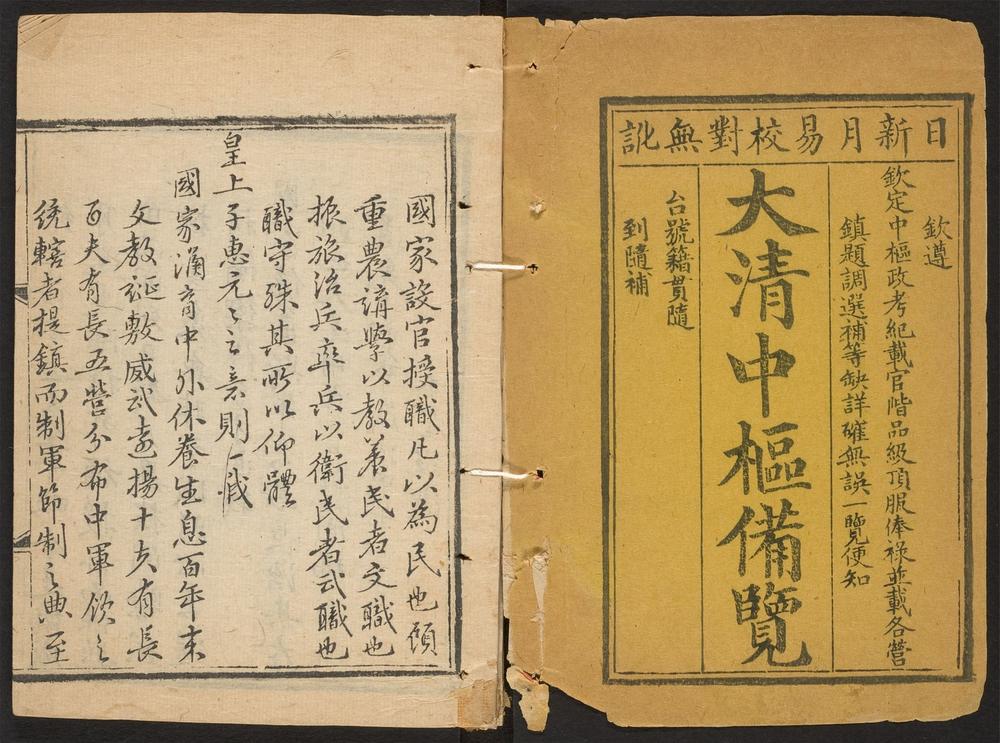 日新月易校對無訛
欽遵
欽定中樞政考紀載官階品級頂服俸祿並載各營
鎮題調選補等缺詳確無誤一覽便知
大清中樞備覽
台號籍貫隨
到隨補
國家設官授職凡以為民也顧
重農講學以教養民者文職也
振旅治兵率兵以衛民者武職也
職守殊其所以仰體
皇上子惠元〻之意則一我
國家涵育中外休養生息百年來
文教誕敷威武遠揚十夫有長
百夫有長五營分布中軍之
統轄者提鎮而制軍節制之典至